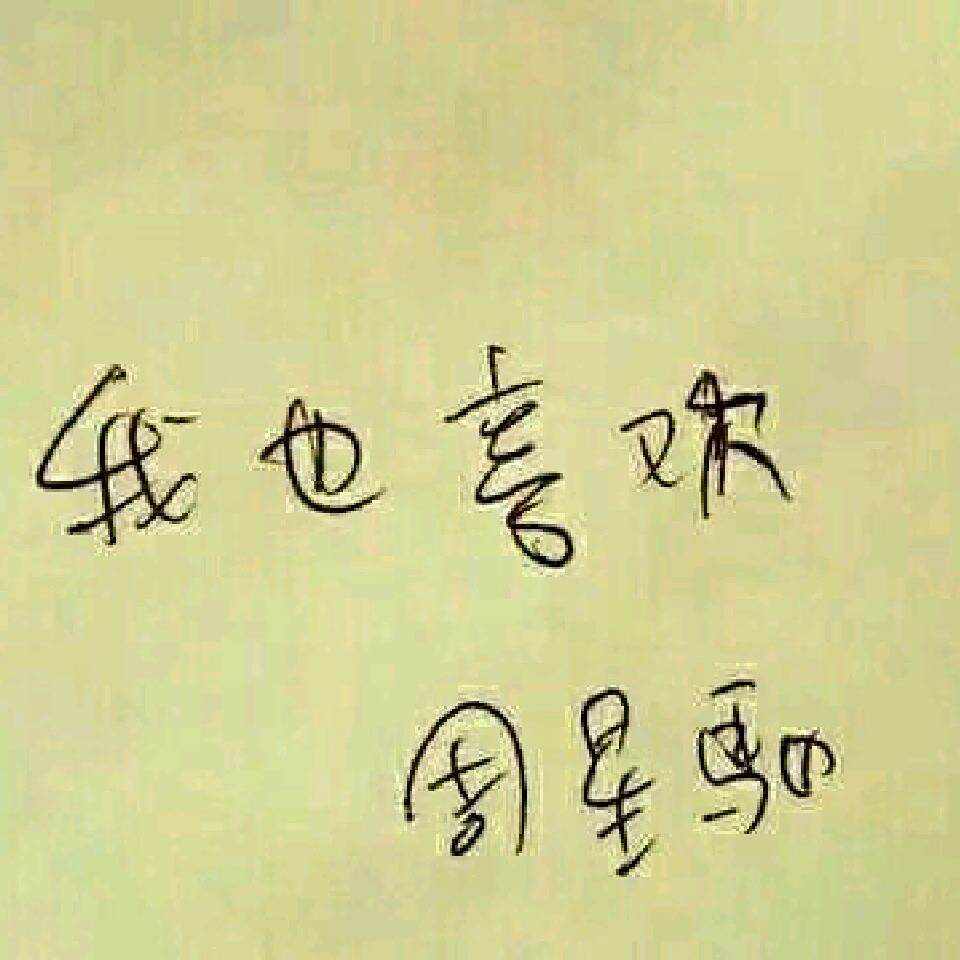 我也喜欢
周星驰